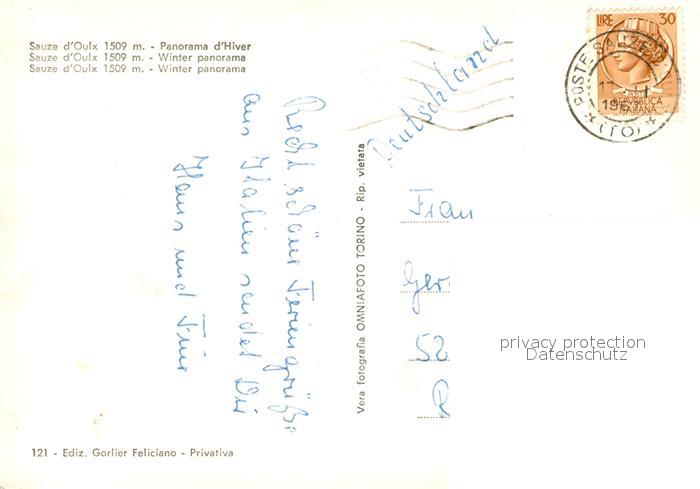 Sauze d'Oulx 1509 m. - Panorama d'Hiver
Sauze d'Oulx 1509 m. - Winter panorama
Sauze d'Oulx 1509 m. - Winter panorama
Recht schöne Feriengrüße
aus Italien sendet Dir
Hans und
Vera fotografia OMNIAFOTO TORINO - Rip. vietata
Deutschland
LIRE 30
POSTE
REPVBBLICA
ITALIANA
POSTE SALZE
(TO)
Frau
Ger
52
R
privacy protection
Datenschutz
121 - Ediz. Gorlier Feliciano - Privativa